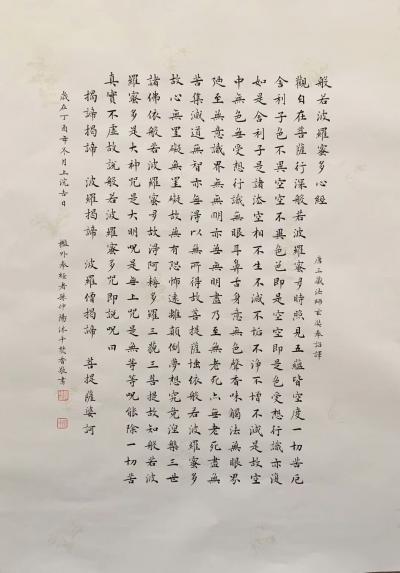 般若波羅蜜多心經
唐三藏法師玄奘奉詔譯
觀自在菩薩行深般若波羅蜜多時照見五蘊皆空度一切苦厄
舍利子色不異空空不異色色即是空空即是色受想行識亦復
如是舍利子是諸法空相不生不滅不垢不淨不增不減是故空
中無色無受想行識無眼耳鼻舌身意無色聲香味觸法無眼界
乃至無意識界無無明亦無無明盡乃至無老死亦無老死盡無
苦集滅道無智亦無得以無所得故菩提薩埵依般若波羅蜜多
故心無罣礙無罣礙故無有恐怖遠離顛倒夢想究竟涅槃三世
諸佛依般若波羅蜜多故得阿耨多羅三藐三菩提故知般若波
羅蜜多是大神呪是大明呪是無上呪是無等等呪能除一切苦
真實不虛故說般若波羅蜜多呪即說呪曰
揭諦揭諦 波羅揭諦 波羅僧揭諦 菩提薩婆訶
歲在丁酉年冬月上浣吉日 檻外奉經者孫仲陽沐手焚香敬書